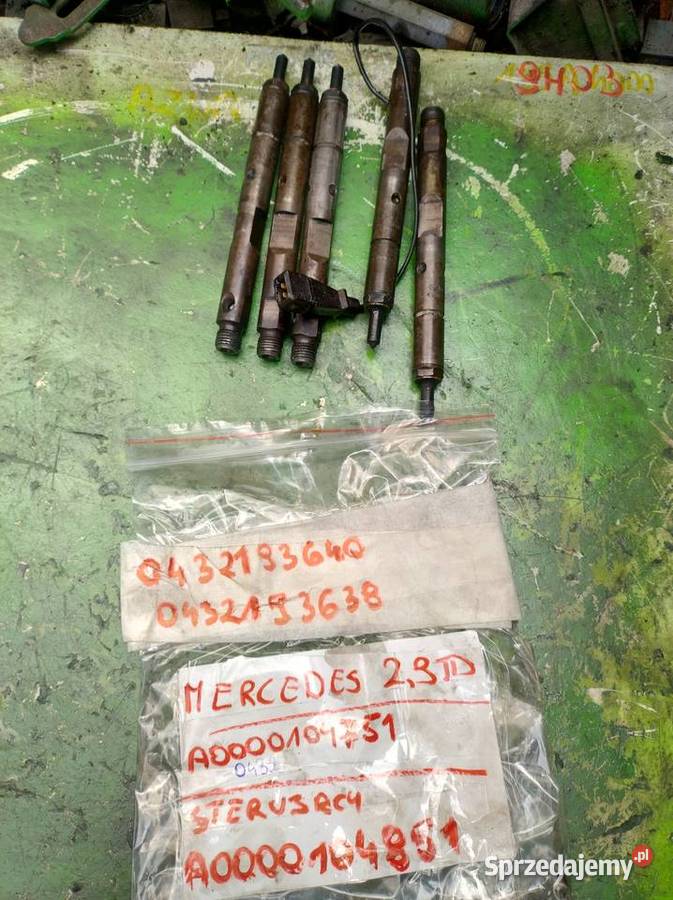 0432193640
0432193638
MERCEDES 2,9TD
A0000104751
043
STERUJĄCY
A0000104851
Sprzedajemy.pl